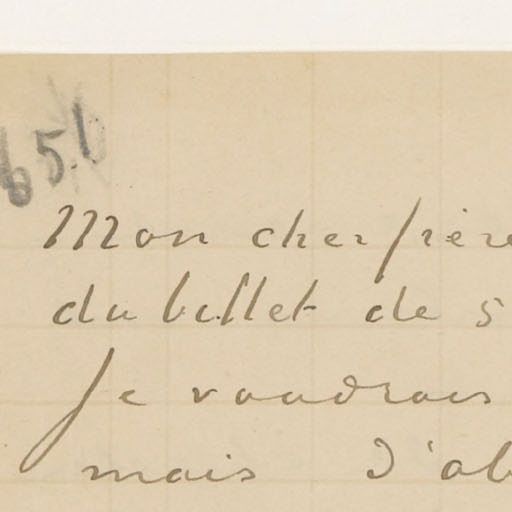 651
Mon cher frère
du billet de 5
Je voudrais
mais d'ab